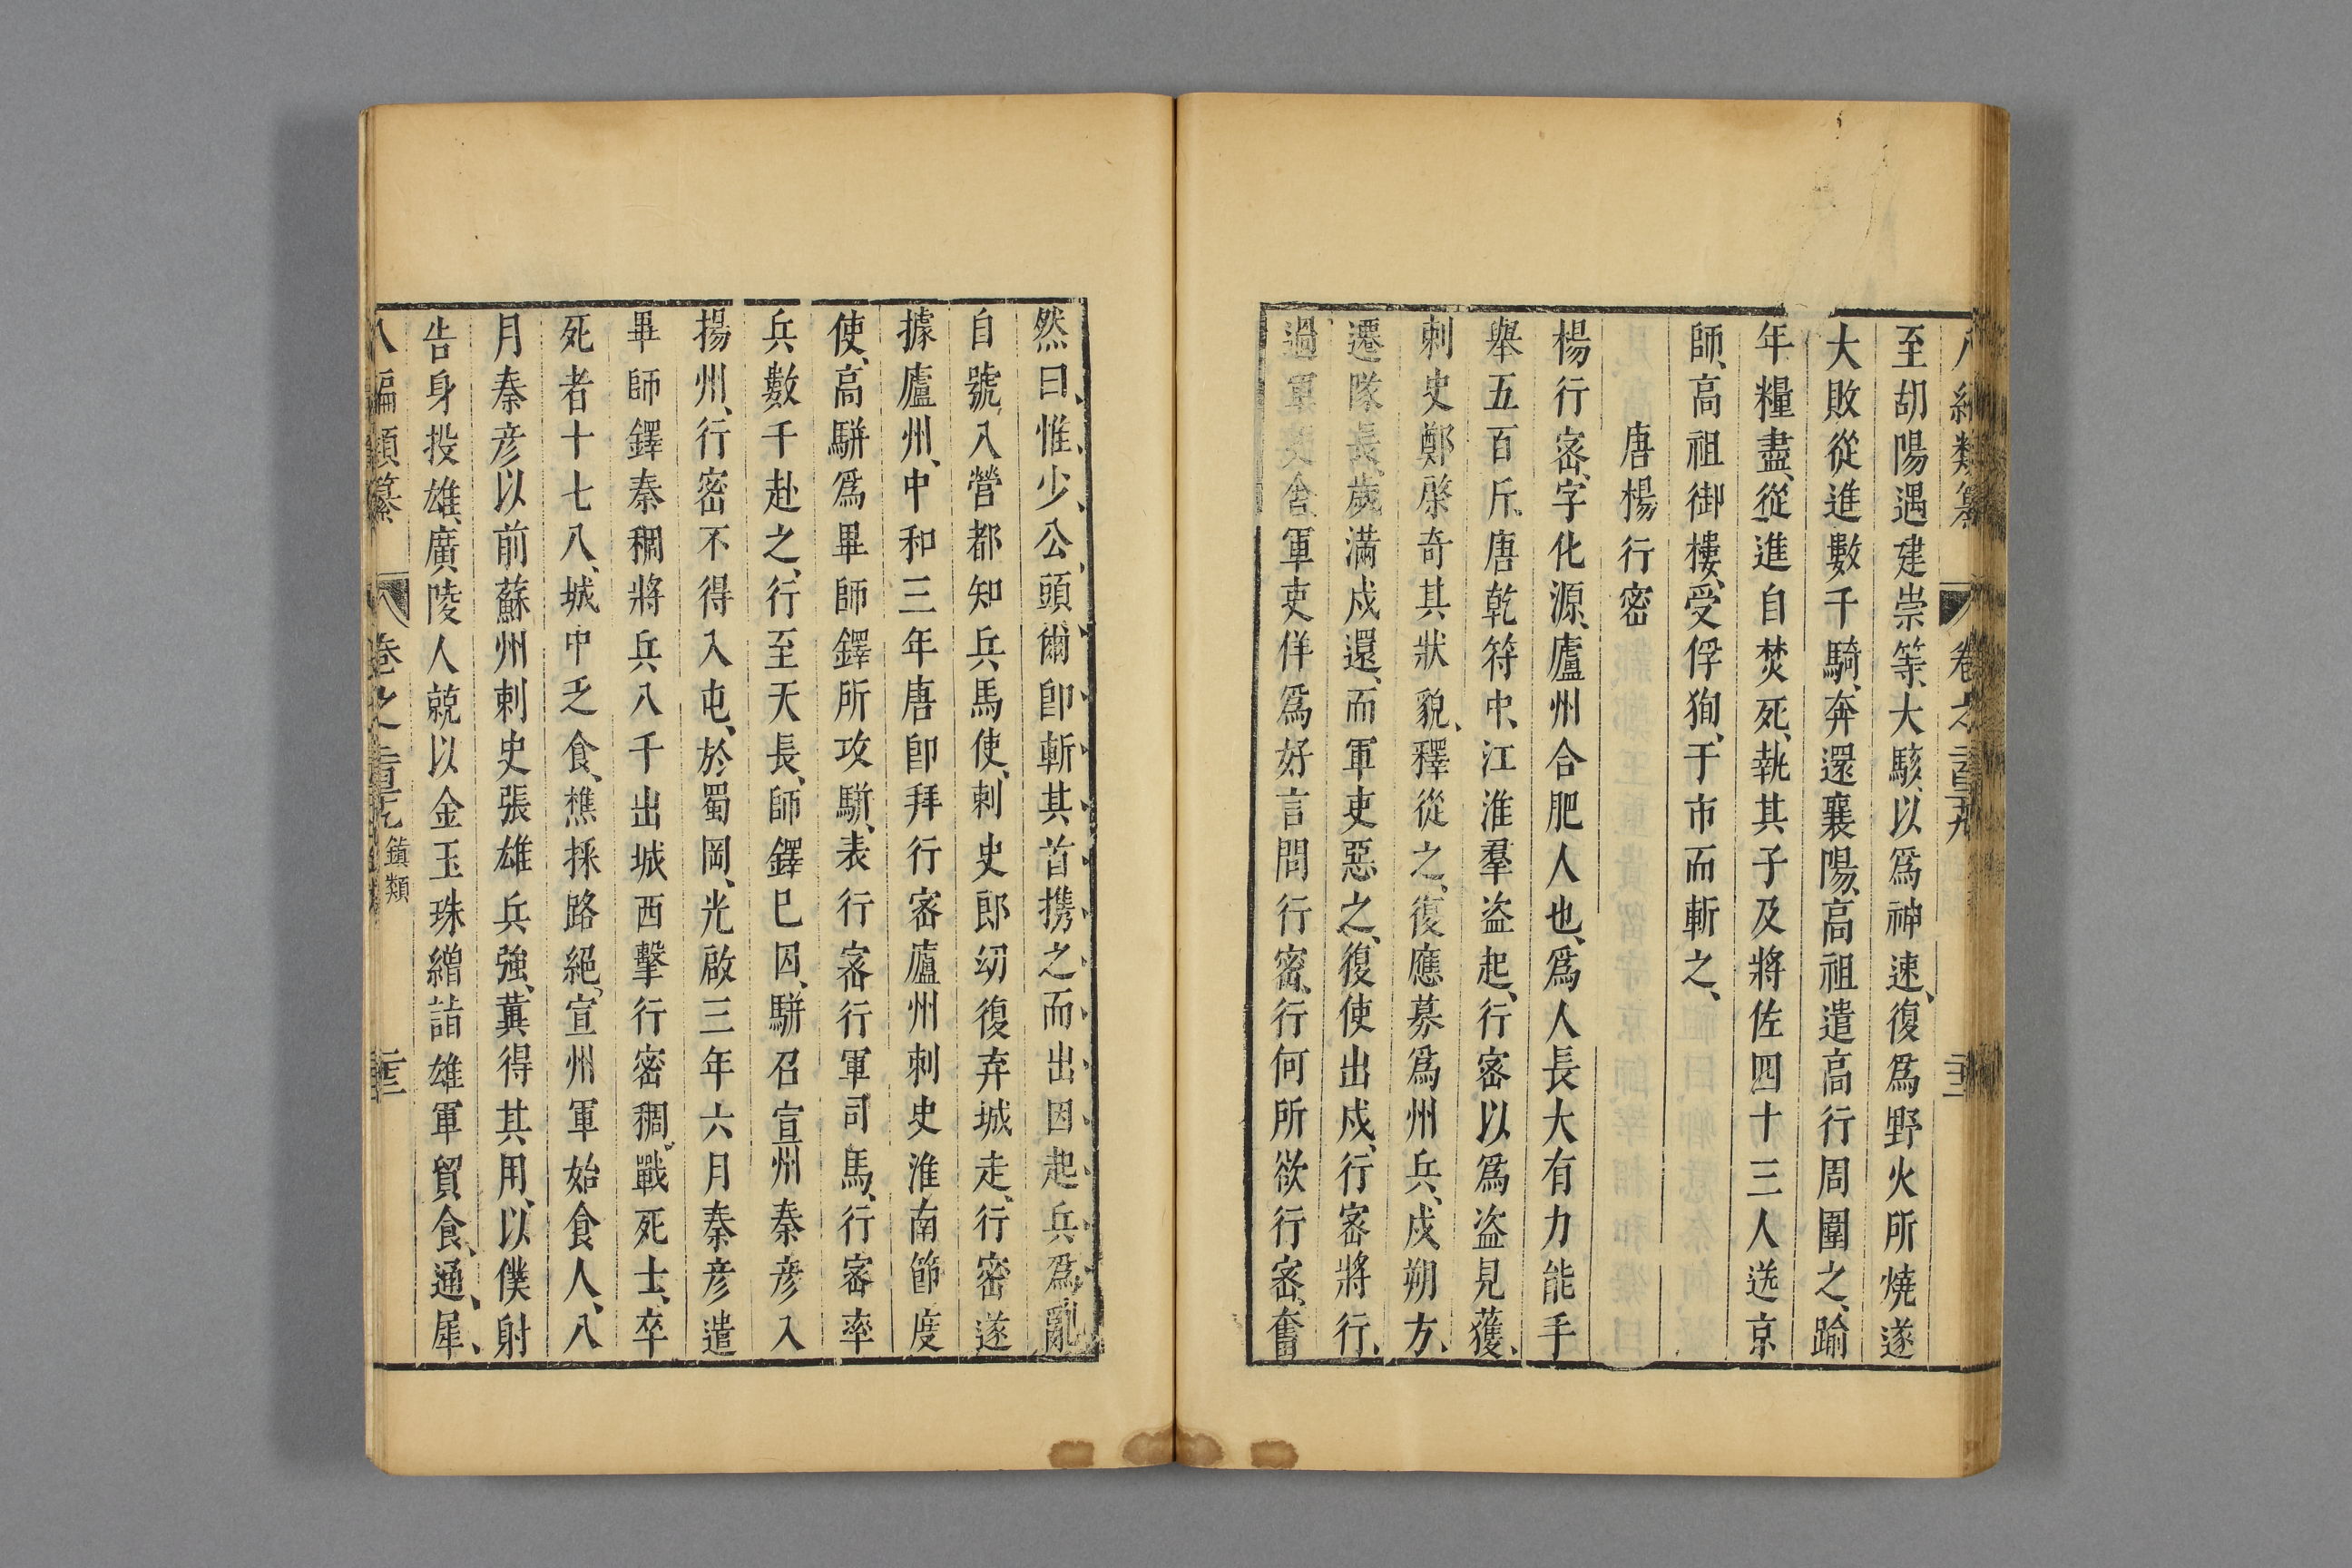 至胡陽遇建崇等、大駭、以爲神速、復爲野火所燒遂
大敗從進數千騎、奔還襄陽、高祖遣高行周圍之、踰
年糧盡、從進自焚死、執其子及將佐四十三人送京
師、高祖御樓、受俘狥、于市而斬之、
唐楊行密
楊行密、字化源、廬州合肥人也、爲人長大有力能手
舉五百斤、唐乾符中、江淮羣盜起、行密以爲盜見獲、
刺史鄭棨奇其狀貌、釋從之、復應募爲州兵、戍朔方、
遷隊長、歲滿戍還、而軍吏惡之、復使出戍、行密將行、
過軍吏舍軍吏佯爲好言問行密、行何所欲行密、奮
然曰、惟少、公頭爾卽斬其首携之而出因起兵爲亂
自號、入營都知兵馬使、刺史郎幼復弃城走、行密遂
據廬州、中和三年唐卽拜行密廬州刺史淮南節度
使、高駢爲畢師鐸所攻駢、表行密行軍司馬、行密率
兵數千赴之、行至天長、師鐸巳囚、駢召宣州秦彦入
揚州、行密不得入屯、於蜀岡、光啟三年六月秦彦遣
畢師鐸秦稠將兵八千出城西擊行密稠。戰死士、卒
死者十七八、城中乏食、樵採路絕、宣州軍始食人、八
月秦彦以前蘇州刺史張雄兵強、冀得其用、以僕射
告身投雄、廣陵人競以金玉珠繒詣雄軍貿食、通、犀、
八編類纂 卷之 鎮類